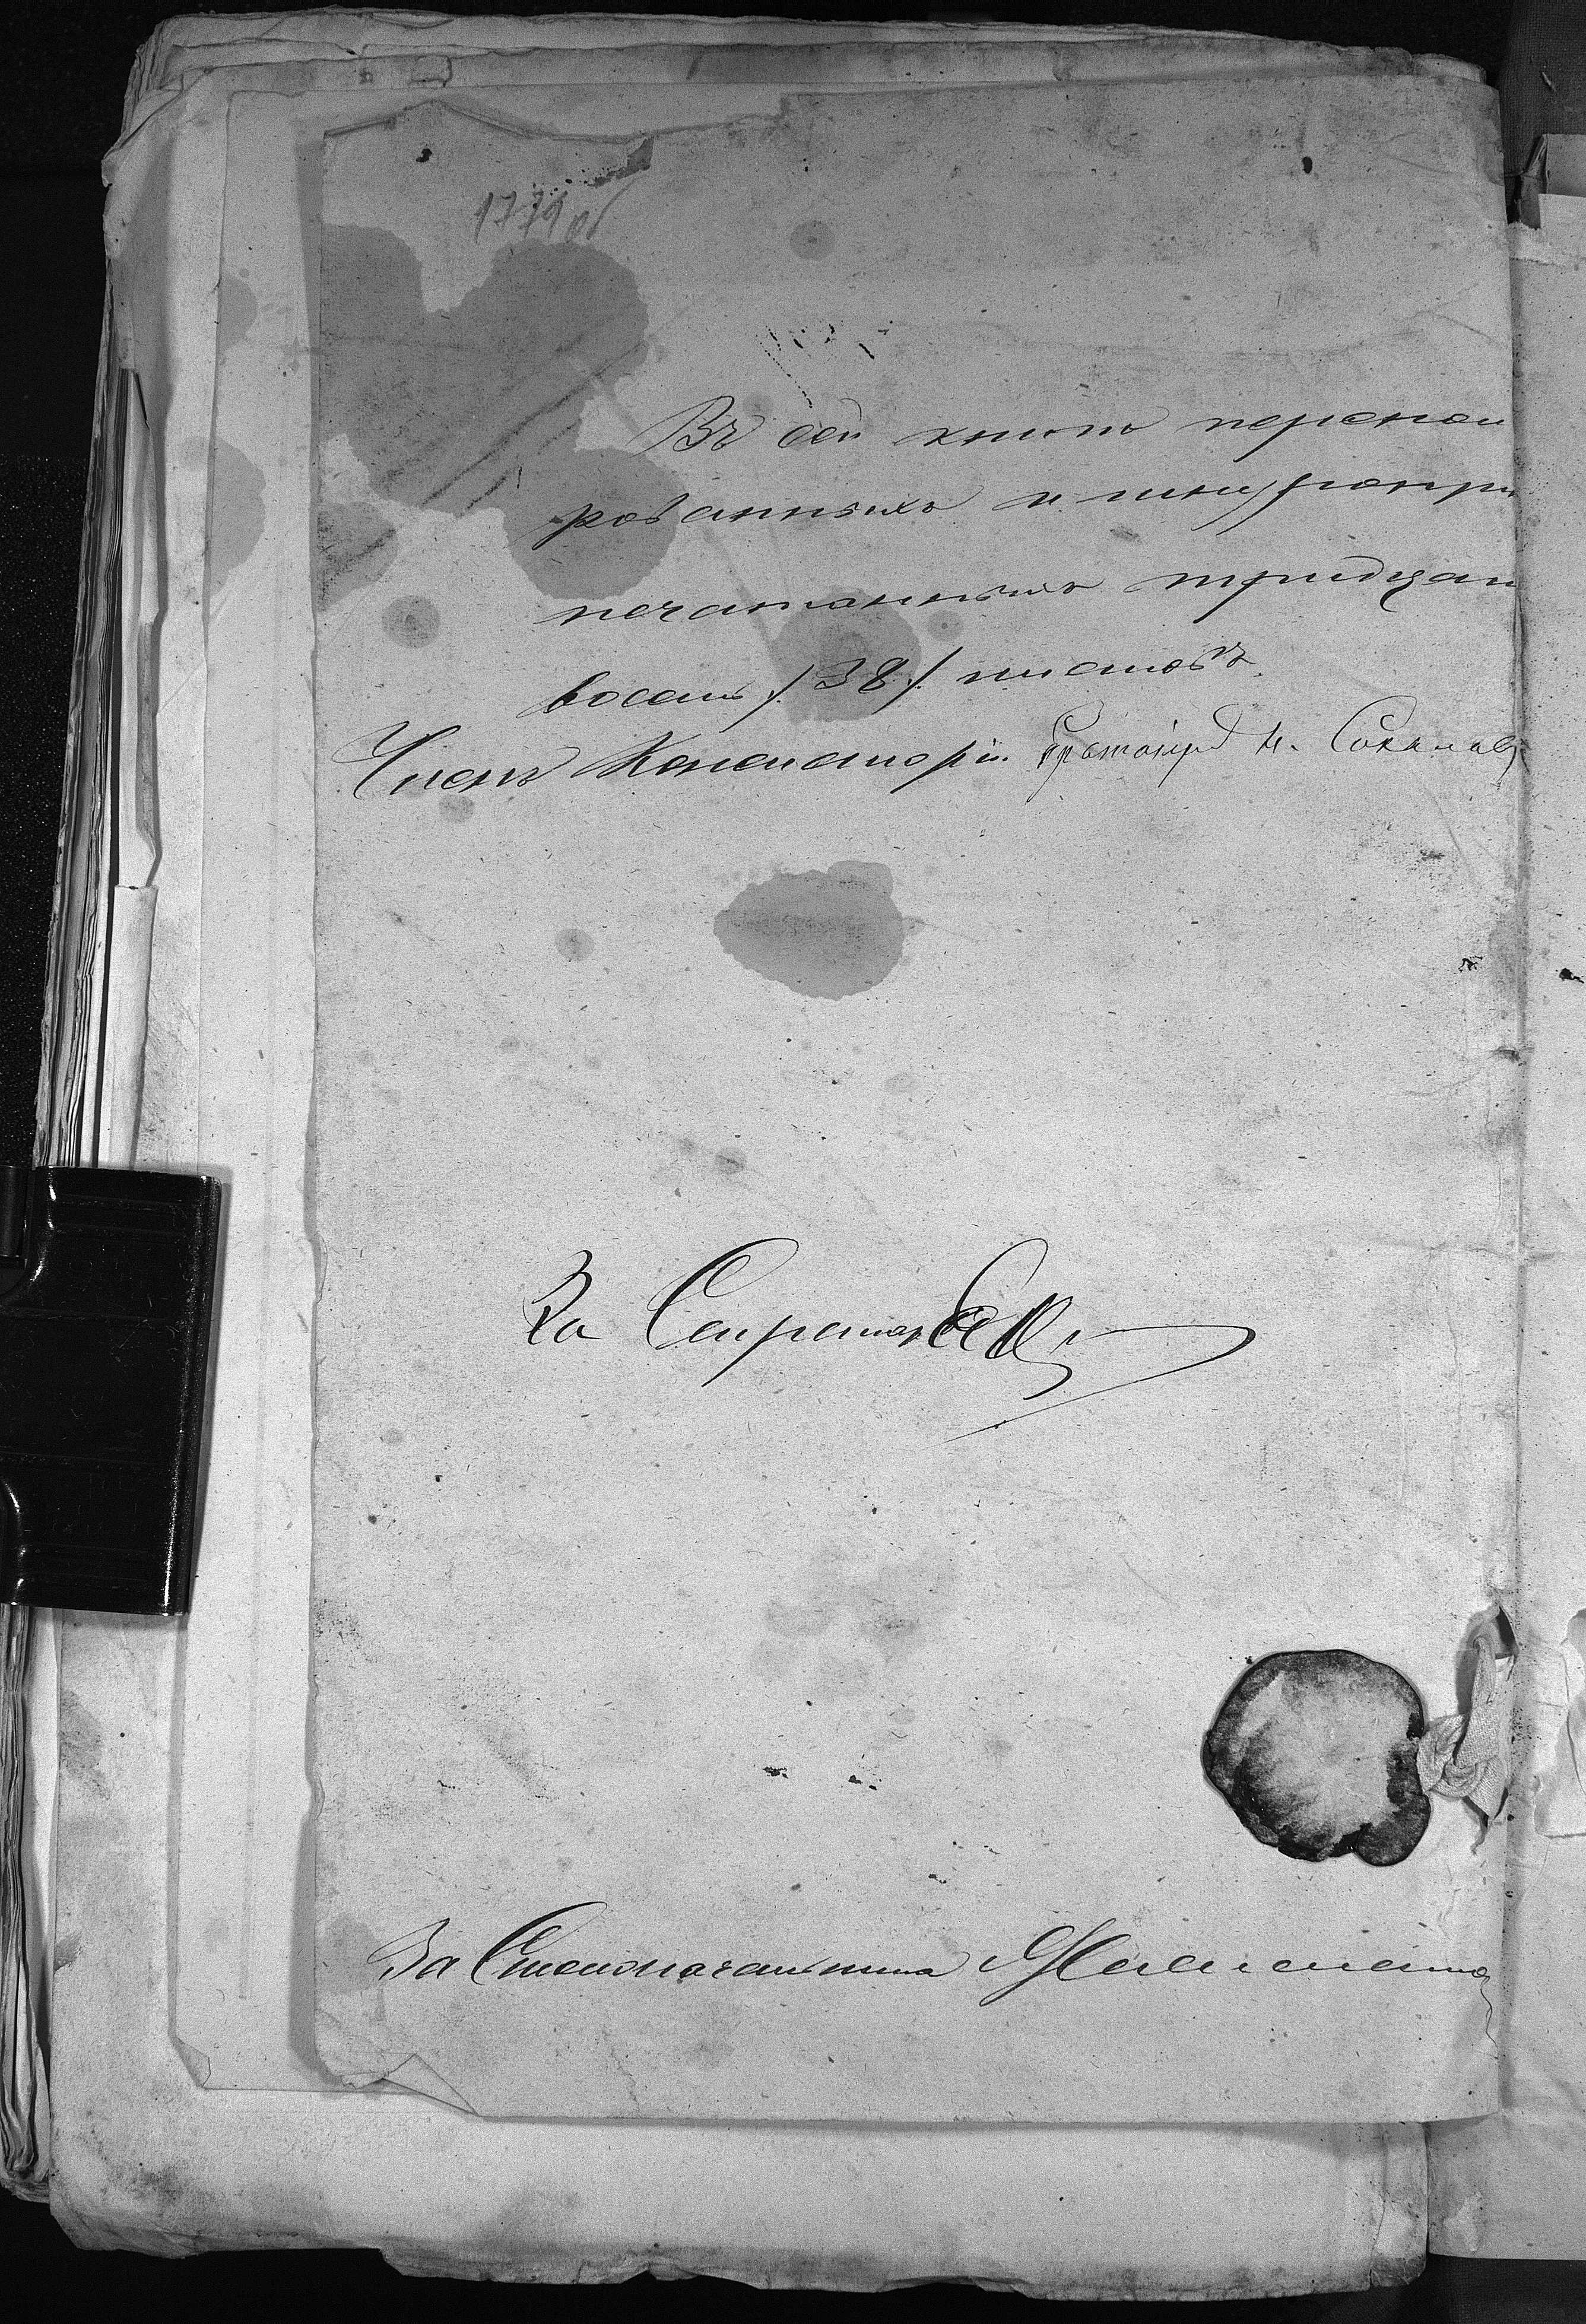 1779 об
Въ сей книгѣ переноме
рованныхъ и шнуропри
печатанныхъ тридцат
восемь /.38/. листовъ.
Членъ Консисторіи Н. Соколовъ
За Секретаря
За Столоначальника